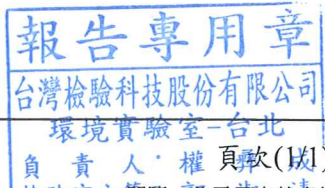 報告專用章
台灣檢驗科技股份有限公司
環境實驗室-台北
負責人:權
頁次(1/1)